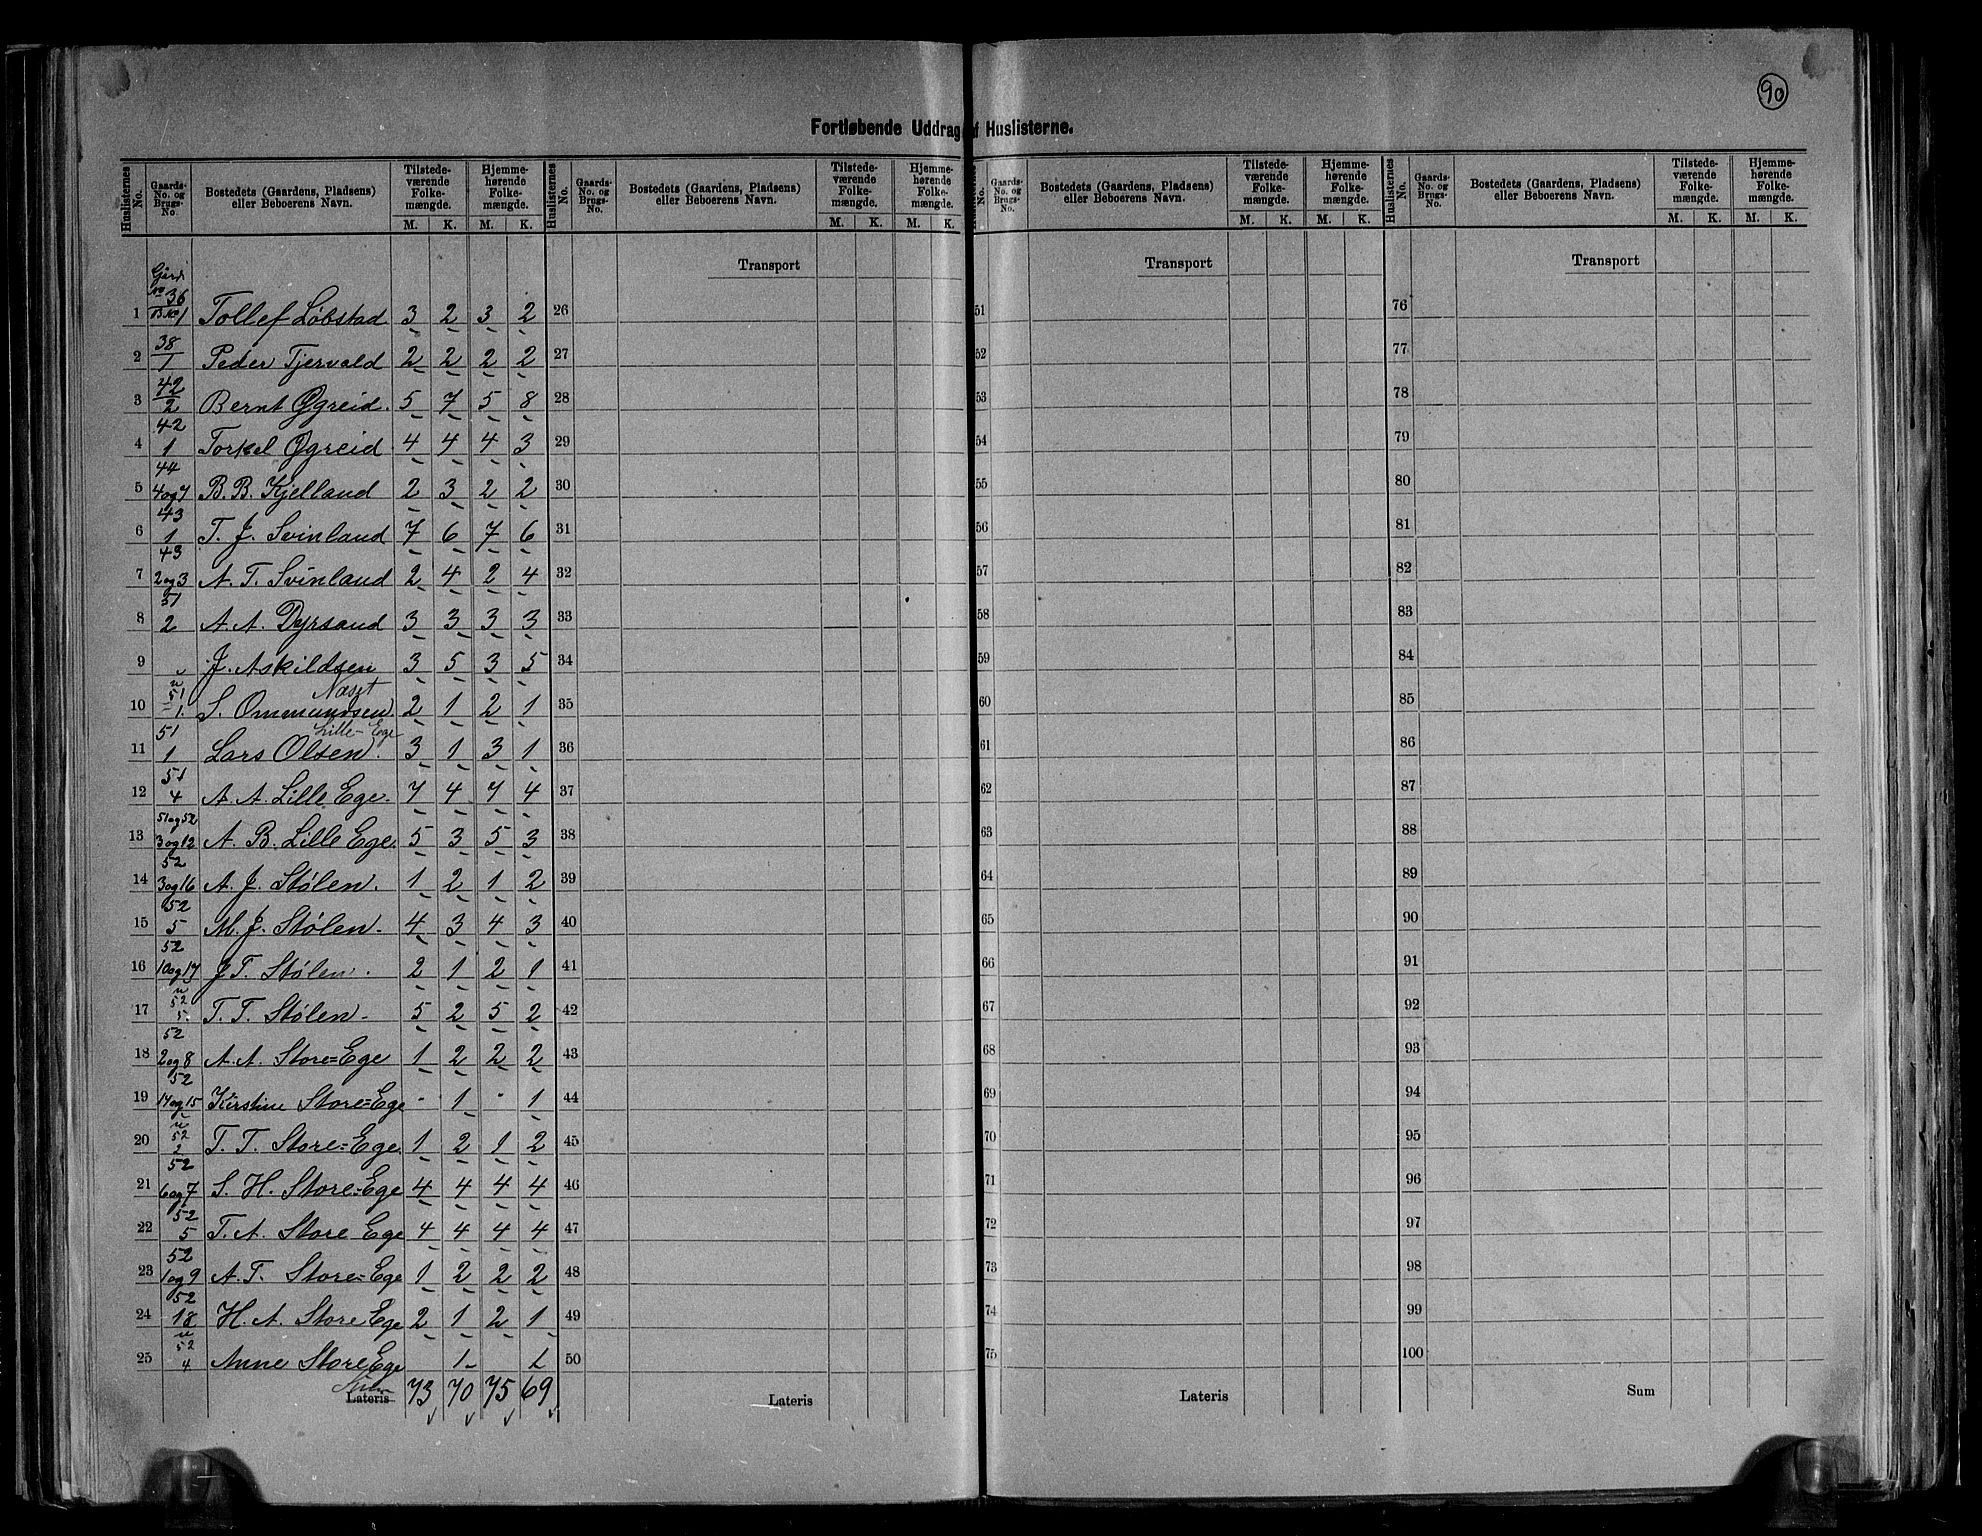 90
Fortløbende Uddrag af Huslisterne.
Huslisternes No. Gaards- No. og Brugs- No. Bostedets (Gaardens, Pladsens) eller Beboerens Navn. Tilstede- værende Folke- mængde. M. K. Hjemme- hørende Folke- mængde. M. K.
Huslisternes No. Gaards- No. og Brugs- No. Bostedets (Gaardens, Pladsens) eller Beboerens Navn. Tilstede- værende Folke- mængde. M. K. Hjemme- hørende Folke- mængde. M. K.
Huslisternes No. Gaards- No. og Brugs- No. Bostedets (Gaardens, Pladsens) eller Beboerens Navn. Tilstede- værende Folke- mængde. M. K. Hjemme- hørende Folke- mængde. M. K.
Huslisternes No. Gaards- No. og Brugs- No. Bostedets (Gaardens, Pladsens) eller Beboerens Navn. Tilstede- værende Folke- mængde. M. K. Hjemme- hørende Folke- mængde. M. K.
Transport Transport Transport
Gård No 36
1 B.No 1 Tollef Løbstad 3 2 3 2 26 51 76
38
2 1 Peder Tjervald 2 2 2 2 27 52 77
42
3 2 Bernt Øgreid. 5 7 5 8 28 53 78
42
4 1 Torkel Øgreid 4 4 4 3 29 54 79
44
5 4 og 7 B. B. Kjelland 2 3 2 2 30 55 80
43
6 1 T. J. Svinland 7 6 7 6 31 56 81
43
7 2 og 3 A. T. Svinland 2 4 2 4 32 57 82
51
8 2 A. A. Dyrsand 3 3 3 3 33 58 83
9 " J. Askildsen 3 5 3 5 34 59 84
51 Næset
10 1. S. Ommundsen. 2 1 2 1 35 60 85
51 Lille-Ege
11 1 Lars Olsen. 3 1 3 1 36 61 86
51
12 4 A. A. Lille Ege. 7 4 7 4 37 62 87
51 og 52
13 3 og 12 A. B. Lille Ege. 5 3 5 3 38 63 88
52
14 3 og 16 A. J. Stølen. 1 2 1 2 39 64 89
52
15 5 M. J. Stølen. 4 3 4 3 40 65 90
52
16 10 og 17 J T. Stølen. 2 1 2 1 41 66 91
52
17 5. T. T. Stølen. 5 2 5 2 42 67 92
52
18 2 og 8 A. A. Store=Ege 1 2 2 2 43 68 93
52
19 14 og 15 Kirstine Store=Ege - 1 - 1 44 69 94
52
20 2 T. T. Store=Ege. 1 2 1 2 45 70 95
52
21 6 og 7 S. H. Store-Ege 4 4 4 4 46 71 96
52
22 5 T. A. Store Ege 4 4 4 4 47 72 97
52
23 1 og 9 A. T. Store=Ege 1 2 2 2 48 73 98
52
24 18 H. A. Store Ege 2 1 2 1 49 74 99
52
25 4 Anne Store Ege 1 1 50 75 100
Sum
Lateris 73 70 75 69 Lateris Lateris Sum